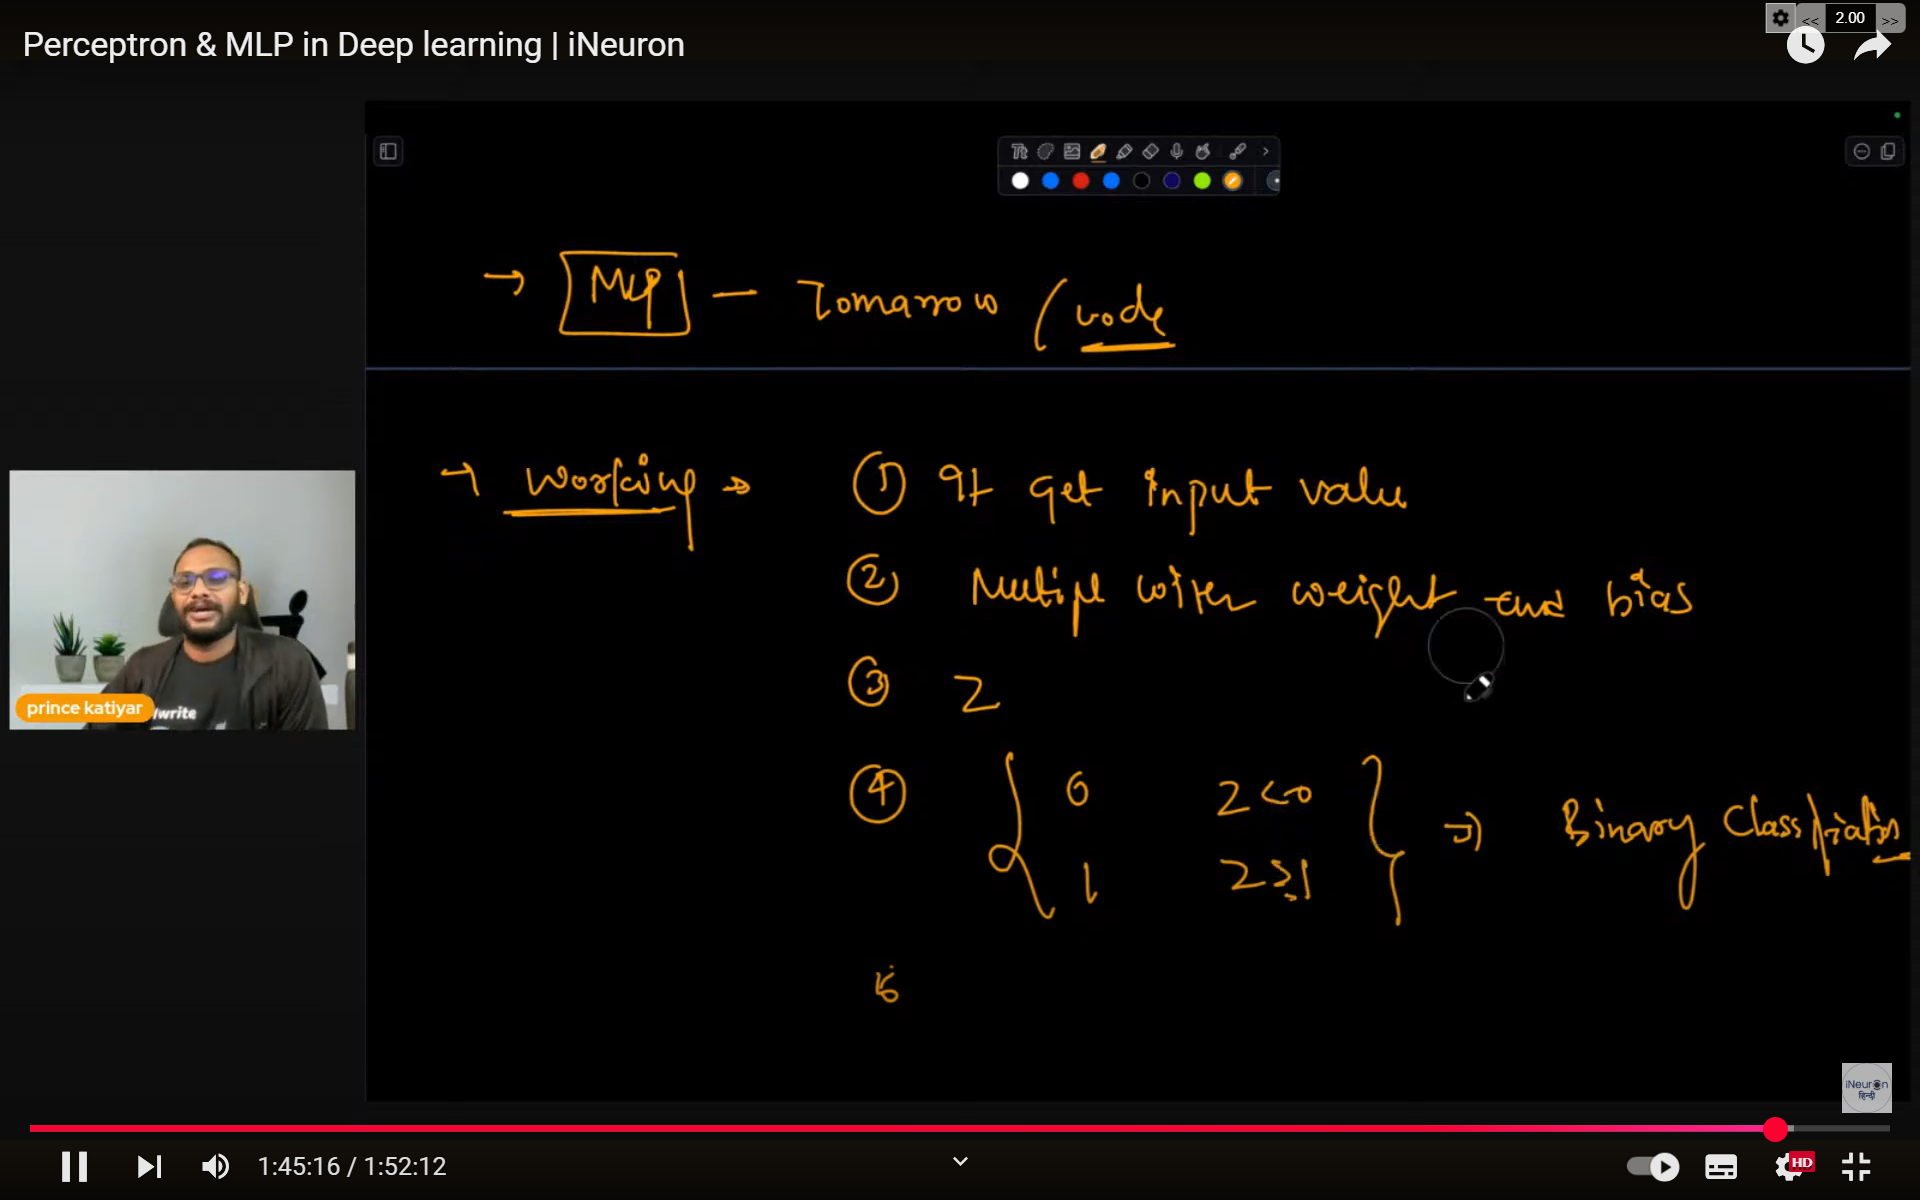 << 2.00 >>
Perceptron & MLP in Deep learning | iNeuron
→ MLP — Tomarrow / code
→ Working → ① It get input value
② Multipl with weight and bias
③ Z
④ { 0 Z<0
1 Z≥1 } ⇒ Binary Classification
prince katiyar
write
iNeuron
हिन्दी
1:45:16 / 1:52:12
HD